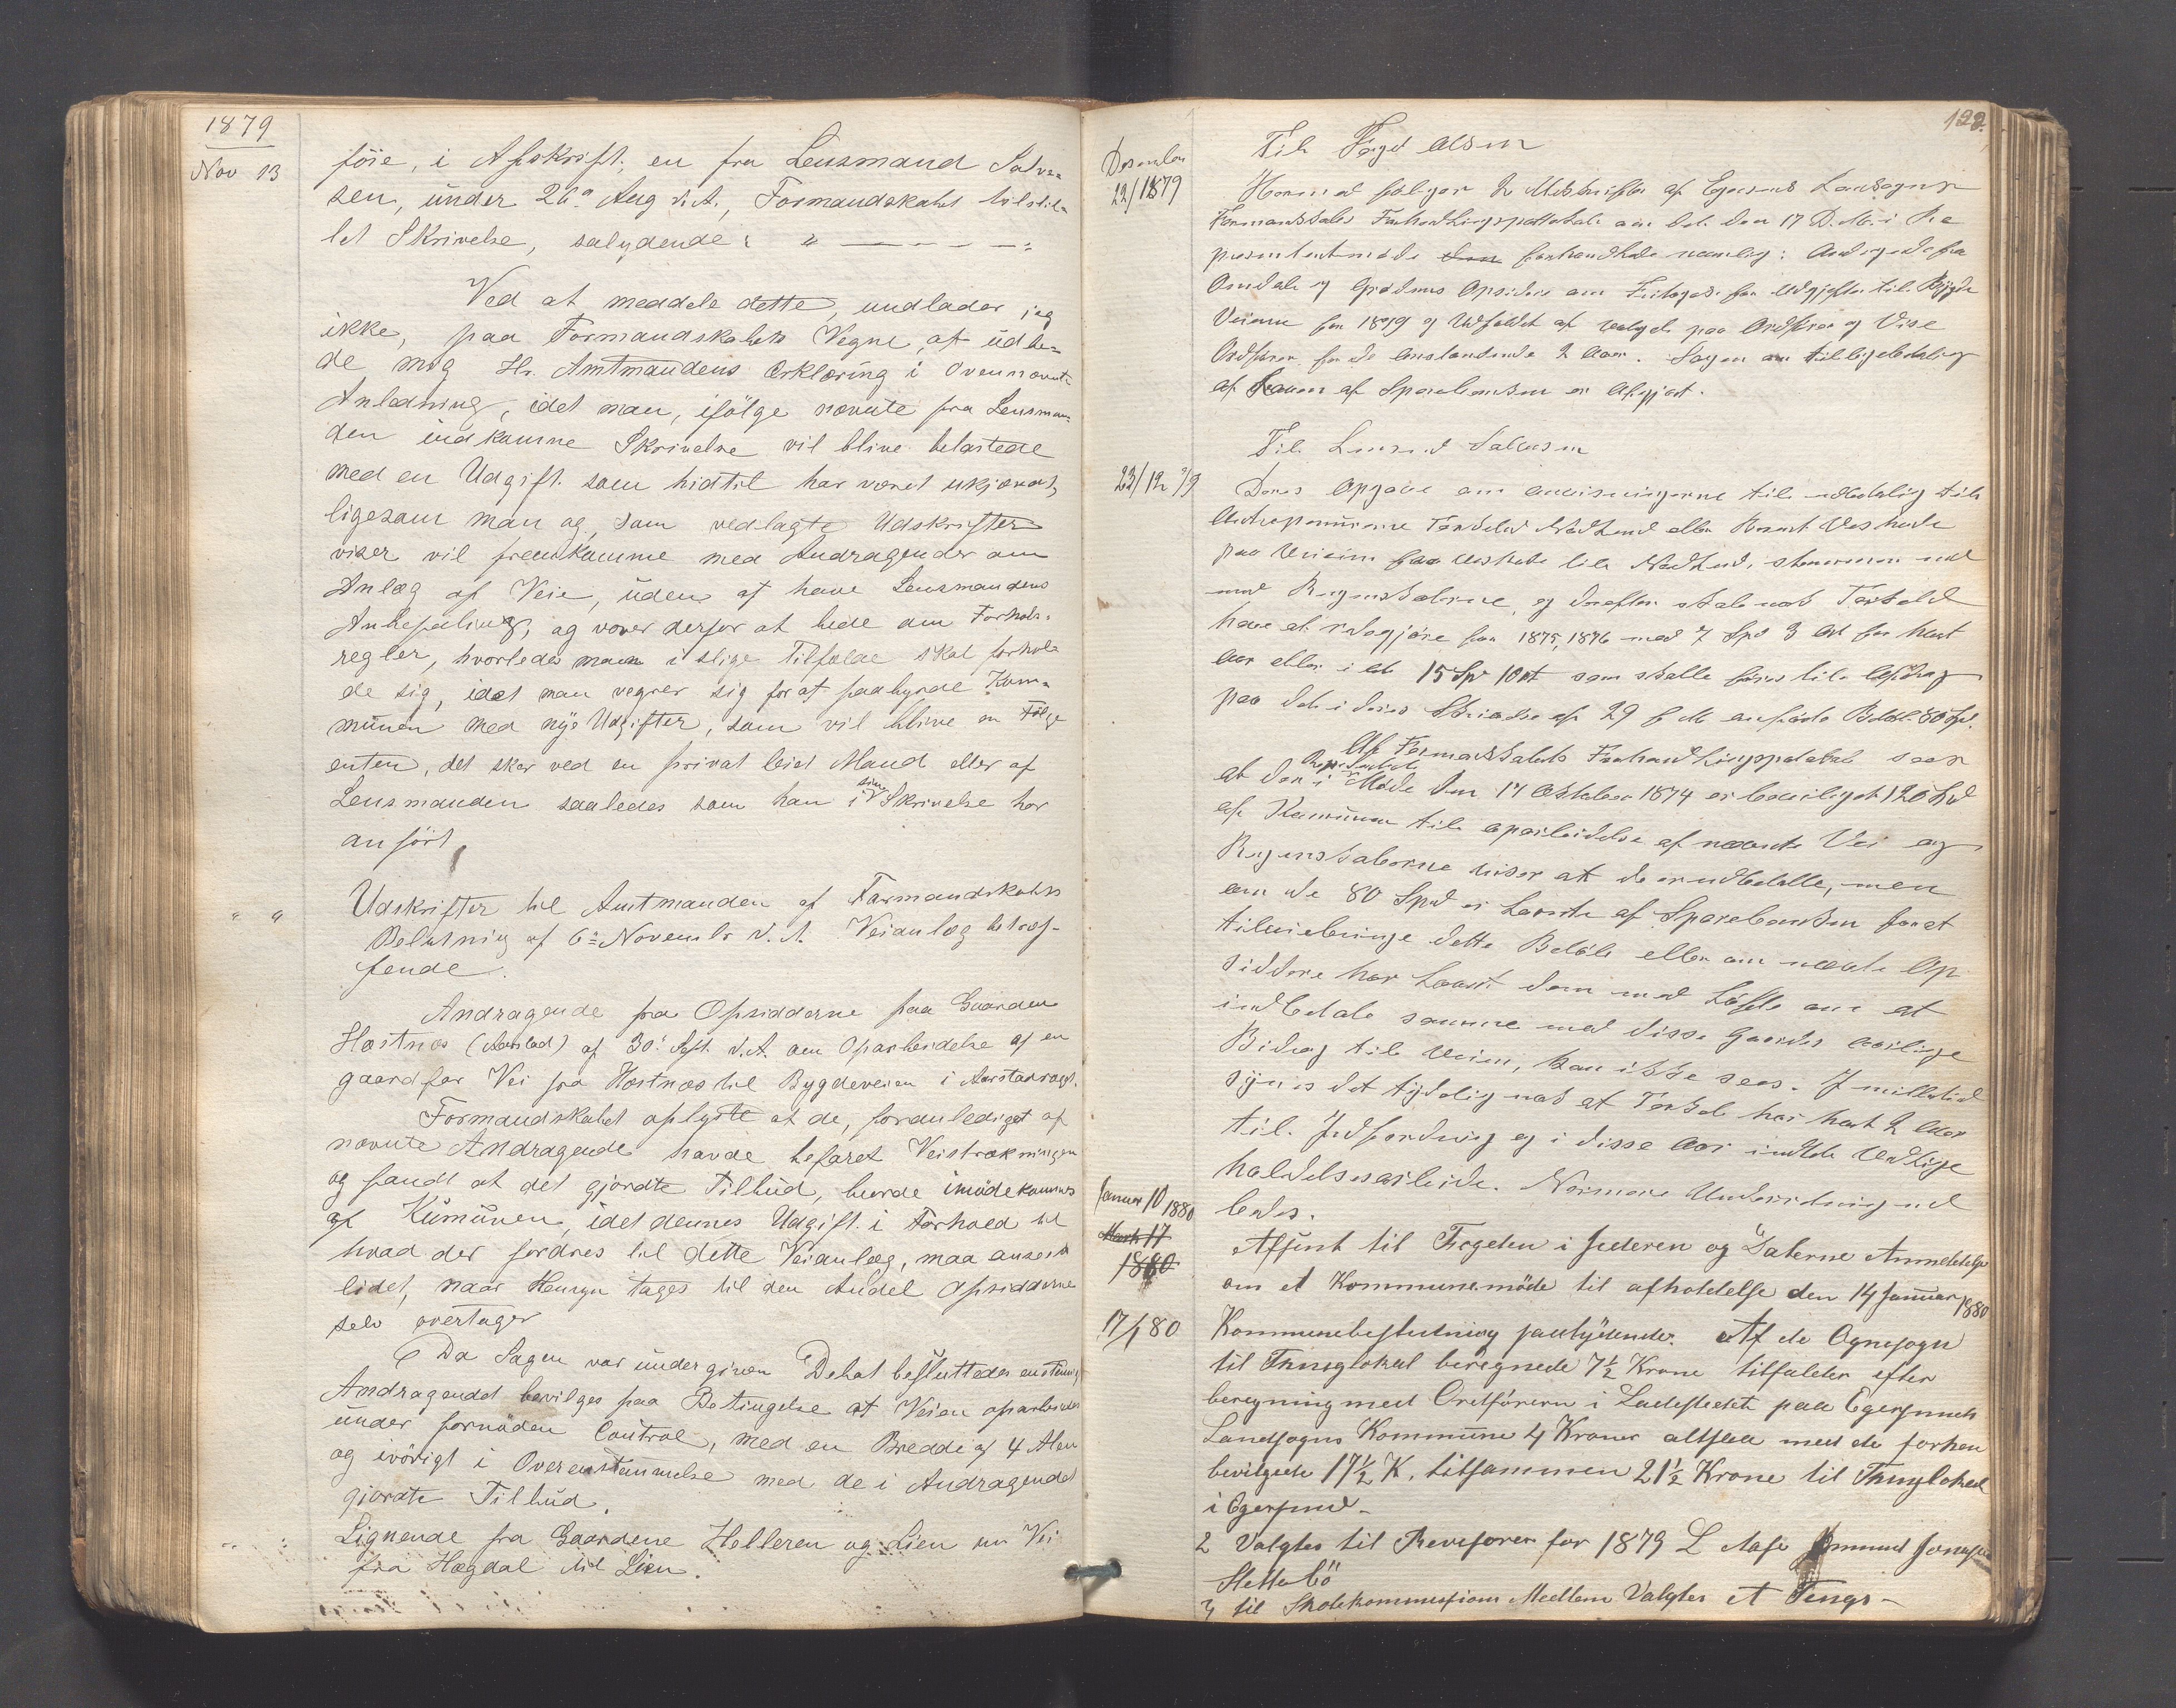 1879
Nov 13
föie, i Afskrift, en fra Lensmand Salve-
sen, under 26de Aug d. A., Formandskabet tilstil-
let Skrivelse, salydende: " — — — — "
Ved at meddele dette, undlader jeg
ikke, paa Formandskabets Vegne, at udbe-
de mig Hr. Amtmandens Erklæring i Ovennævnte
Anledning, idet man, ifölge nævnte fra Lensman-
den indkomne Skrivelse vil blive belastede
med en Udgift som hidtil har været ukjendt,
ligesom man og, som vedlagte Udskrifter
viser vil fremkomme med Andragender om
Anlæg af Veie, uden at have Lensmandens
Anbefaling, og vover derfor at bede om Forhols-
regler, hvorledes man i slige Tilfælde skal forhol-
de sig, idet man vegrer sig for at paabyrde Kom-
münen med nye Udgifter, som vil blive en Fölge
enten, det sker ved en privat leiet Mand eller af
Lensmanden saaledes som han i sin Skrivelse har
anfört.
" " Udskrifter til Amtmanden af Formandskabets
Beslutning af 6te Novembr d. A. Veianlæg betræf-
fende.
Andragende fra Opsidderne paa Gaarden
Hæstnes (Aarstad) af 30te Sept. d. A. om Oparbeidelse af en
gaard for Vei fra Hæstnæs til Bygdeveien i Aarstad
Formandskabet oplyste at de, foranlediget af
nævnte Andragende havde befaret Veistrækningen
og fandt at det gjordte Tilbud, burde imödekommes
af Kümünen, idet dennes Udgift i Forhold til
hvad der fordres til dette Veianlæg, maa ansees
lidet, naar Hensyn tages til den Andel Opsidderne
selv overtager
Da Sagen var undergiven Debat besluttedes enstemig
Andragendet bevilges paa Betingelse at Veien oparbeides
under fornöden Control, med en Bredde af 4 Alen
og iövrigt i Overenstemmelse med de i Andragendet
gjordte Tilbud.
" " Lignende fra Gaardene Helleren og Lien um Vei
fra Hægdal til Lien.
122.
Desember
22/1879
Til Foged Olsen
Hermed fölger 2 Udskrifter af Egersunds Landsogns
Formandskabs Forhandlingsprotokol om det den 17 D. M. i Re
presentantmöde den forhandlede nemlig: Andragende fra
Omdal og Grödems Opsidere om Fritagelse for Udgifter til Bygde
Veiene for 1879 og Udfaldet af valget paa Ordförer og Vise
Ordförer for de anstondende 2 Aar. Sagen om tilbagebetaling
af Laanen af Sparebanken er Afgjort.
23/12 79
Til Lensmand Salvesen
Deres Opgave om anvisningerne til udbetaling til
Nedlund eller Veshus
paa Veien fra Veshus til Nedlund, stemmer med
med Regnskaberne, og derefter skal nok Torkel
have at redegjöre for 1875, 1876 med 7 Spd 3 Ort for hvert
Aar eller i alt 15 Spd 1 Ort som skulle före til Afdrag
paa det i deres Skrivelse af 29 f. M. anförte Belöb 80 Spd.
Af Formandskabets Forhandlingsprotokol sees
at der i Represent. Möde den 17 Oktober 1874 er bevilget 120 Spd
af Kommunen til oparbeidelse af nævnte Vei og
Regnskaberne viser at de er udbetalte, men
om de 80 Spd er laante af Sparebanken for at
tilveiebringe dette Belöb eller om nævnte Op
siddere har laant dem med Löfte om at
indbetale samme med disse Gaardes aarlige
Bidrag til Veien, kan ikke sees. Imidlertid
synes det tydelig nok at Torkel har havt 2 Aar
til Indfordring og i disse Aar Vedlige
holdelsesarbeide. Nærmere Underretning ud
bedes.
Januar 10 1880
Marts 17
1880
Afsent til Fogden i Jæderen og Dalerne Anmeldelse
om et Kommunemöde til afholdelse den 14 Januar 1880
17/1 80
Kommunebeslutning saalydende. Af de Ognesogn
til Thinglokal beregnede 7½ Krone tilfalder efter
beregning med Ordföreren i Ladestedet paa Egersunds
Landsogns Kommune 4 Kroner altsaa med de forhen
bevilgede 17½ K. tilsammen 21½ Krone til Thinglokal
i Egersund.
2 Valgtes til Revisorer for 1879 L Aase Omund Jonassen
Slettebö
3 til Skolekommissions Medlem Valgtes A Tengs-